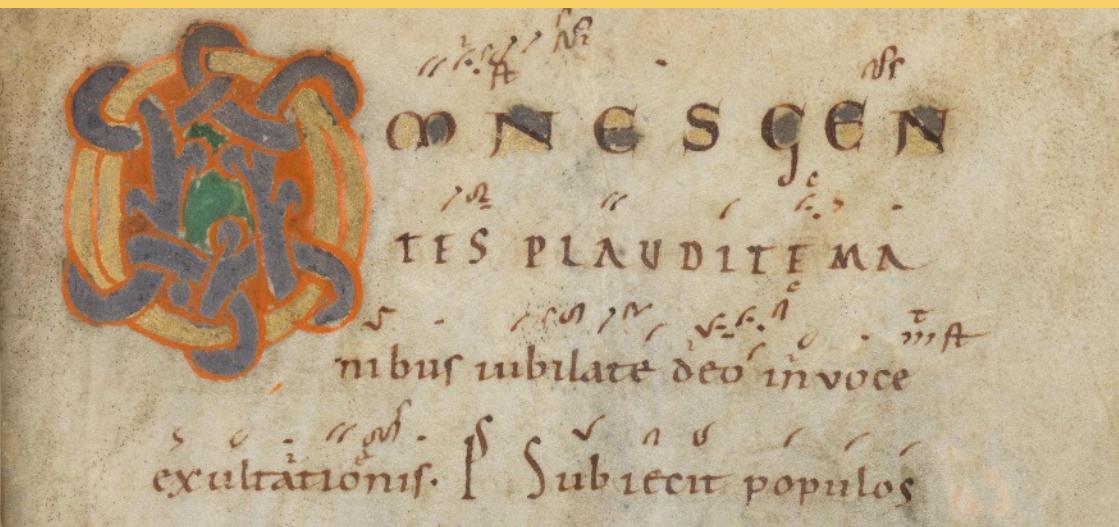 OMNES GEN
TES PLAUDITE MA
nibus iubilate deo in voce
exultationis. Ps Subiecit populos